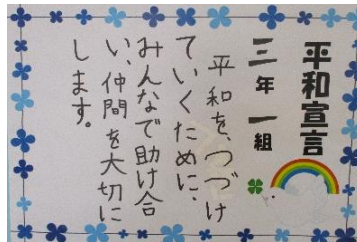 平和宣言
三年一組
平和を、つづけ
ていくために、
みんなで助け合
い、仲間を大切に
します。